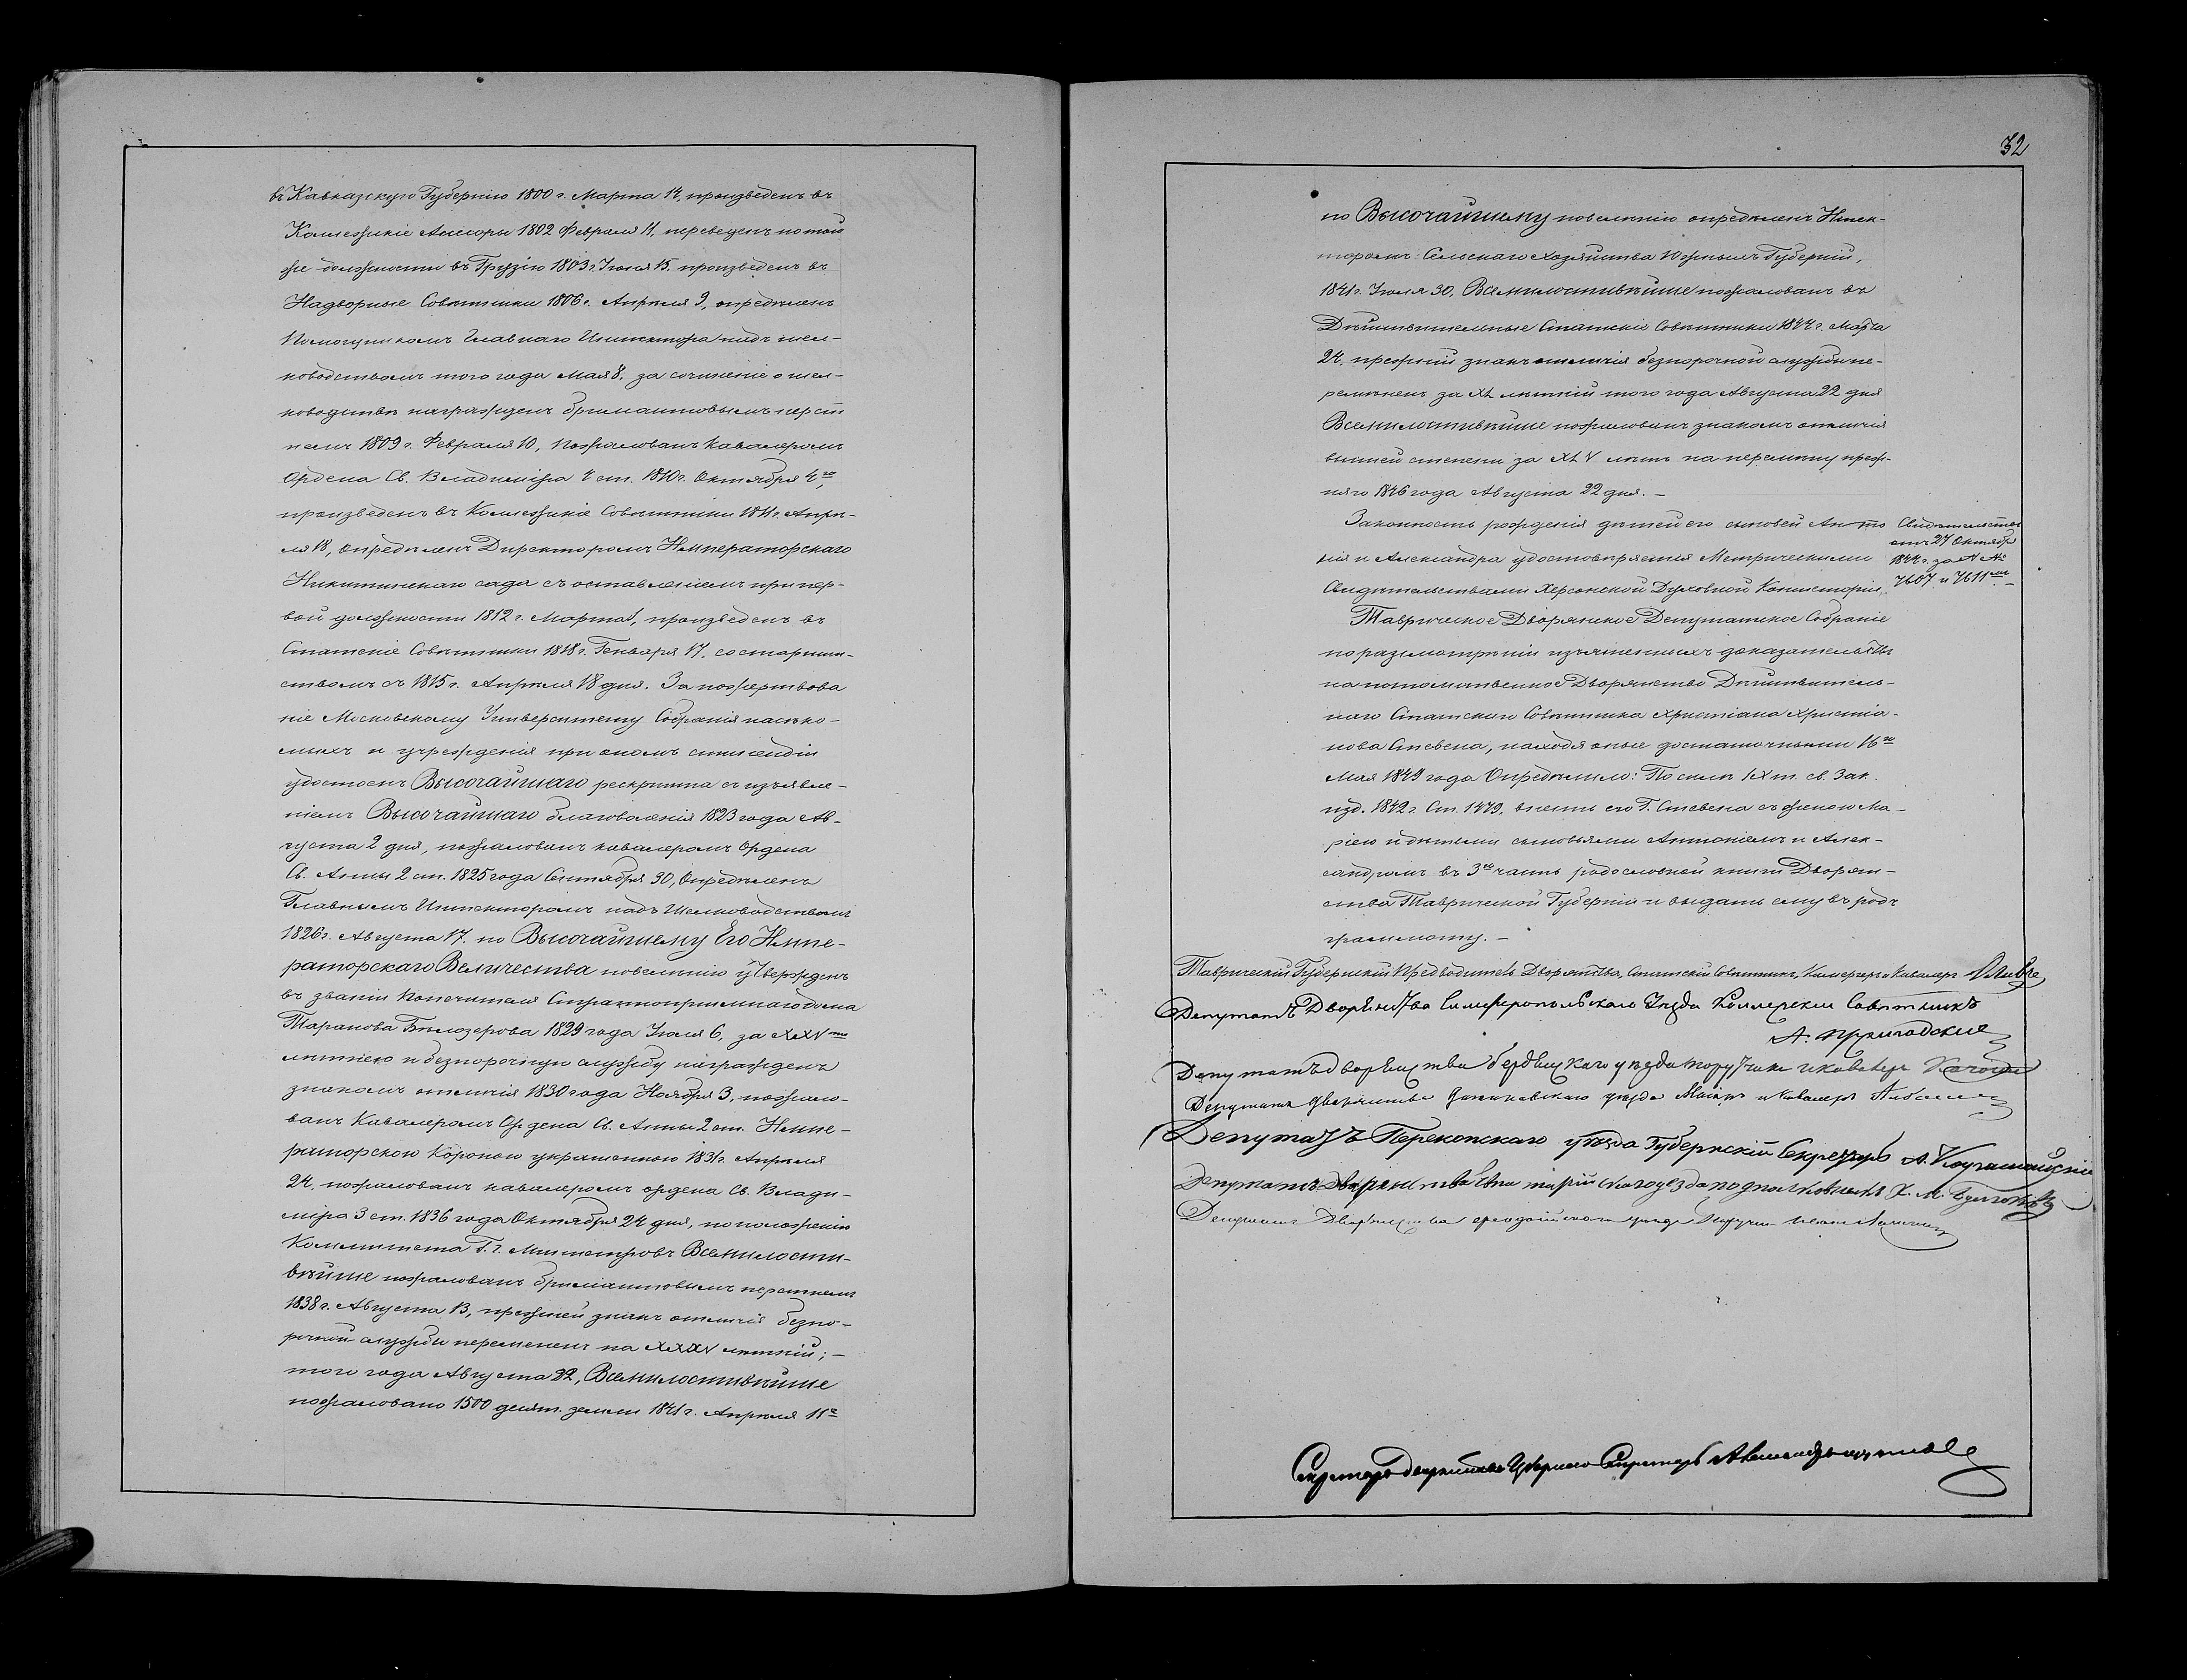 въ Кавказскую Губернію 1800 г. Марта 14, произведенъ въ
Коллежскіе Ассесоры 1802 Февраля 11, переведенъ по той
же должности въ Грузію 1803 г. Іюля 15. произведенъ въ
Надворные Совѣтники 1806 г. Апрѣля 9, опредѣленъ
Помощникомъ Главнаго Инспектора надъ шел-
ководствомъ того года Мая 8. за сочиненіе о шел-
ководствѣ награжденъ брилліантовымъ перст
немъ 1809 г. Февраля 10, пожалованъ Кавалеромъ
Ордена Св. Владиміра 4 ст. 1810 г. Октября 4го,
произведенъ въ Коллежскіе Совѣтники 1811 г. Апрѣ-
ля 18, опредѣленъ Директоромъ Императорскаго
Никитинскаго сада съ оставленіемъ при пер-
вой должности 1812 г. Марта, произведенъ въ
Статскіе Совѣтники 1818 г. Генваря 17. со старшин-
ствомъ съ 1815 г. Апрѣля 18 дня. За пожертвова
ніе Московскому Университету Собранія насѣко-
мыхъ и учрежденія при ономъ стипендіи
удостоенъ Высочайшаго рескрипта съ изъявле-
ніемъ Высочайшаго благоволенія 1823 года Ав-
густа 2 дня, пожалованъ кавалеромъ Ордена
Св. Анны 2 ст. 1825 года Сентября 30, Опредѣленъ
Главнымъ Инспекторомъ надъ Шелководствомъ
1826 г. Августа 17. по Высочайшему Его Импе-
раторскаго Величества повелѣнію утвержденъ
въ званіи Попечителя Страннопріимнаго дома
Таранова Бѣлозерова 1829 года Іюля 6, за XXV ти
лѣтнею и безпорочную службу награжденъ
знакомъ отличія 1830 года Ноября 3, пожало-
ванъ Кавалеромъ Ордена Св. Анны 2 ст. Импе-
раторскою Короною украшенною 1831 г. Апрѣля
24. пожалованъ кавалеромъ ордена Св. Влади-
міра 3 ст. 1836 года Октября 24 дня, по положенію
Коммитета Г. г. Министровъ Всемилости-
вѣйше пожалованъ брилліантовымъ перстнемъ
1838 г. Августа 13, прежней знакъ отличія безпо-
рочной службы перемененъ на XXXV лѣтній; –
того года Августа 22, Всемилостивѣйше
пожаловано 1500 десят. земли 1841 г. Апрѣля 11го
32
по Высочайшему повелѣнію опредѣленъ Инспек-
торомъ Сельскаго Хозяйства Южныхъ Губерній,
1841 г. Іюля 30, Всемилостивѣйше пожалованъ въ
Дѣйствительные Статскіе Совѣтники 1844 г. Марта
24, прежній знакъ отличія безпорочной службы пе-
ремѣненъ за XL лѣтній того года Августа 22 дня
Всемилостивѣйше пожалованъ знакомъ отличія
высшей степени за XLV лѣтъ на перемѣну преж-
няго 1846 года Августа 22 дня. –
Законность рожденія дѣтей его сыновей Анто
нія и Александра удостовѣряется Метрическими
Свидѣтельствами Херсонской Духовной Консисторіи.
Свидѣтельства
отъ 27 Октября
1844 г. за №№
7607 и 7611 ми
Таврическое Дворянское Депутатское Собраніе
по разсмотрѣніи изъясненныхъ доказательствъ
на потомственное Дворянство Дѣйствитель-
наго Статскаго Совѣтника Христіана Христіа-
нова Стевена, находя оные достаточными 16го
Мая 1849 года Опредѣлило: По силѣ IX т. св. Зак.
изд. 1842 г. Ст. 1479, внести его Г. Стевена съ женою Ма-
ріею и дѣтьми сыновьями Антоніемъ и Алек-
сандромъ въ 3ю часть родословной книги Дворян-
ства Таврической Губерніи и выдать ему въ родъ
грамоту. –
Таврическій Губернскій Предводитель Дворянства, Статскій Совѣтникъ, Камергеръ и Кавалеръ
Депутатъ Дворянства Симферопольскаго Уѣзда Коллежскій Совѣтникъ
Депутатъ дворянства бердянскаго уѣзда поручикъ и кавалеръ
Депутатъ дворянства уѣзда Маіоръ и Кавалеръ
Депутатъ Перекопскаго уѣзда Губернскій Секретарь
Депутатъ дворянства Евпаторійскаго уезда подполковникъ
Депутатъ Дворянства Феодосійскаго уѣзда
Секретарь дворянства Губернскій Секретарь